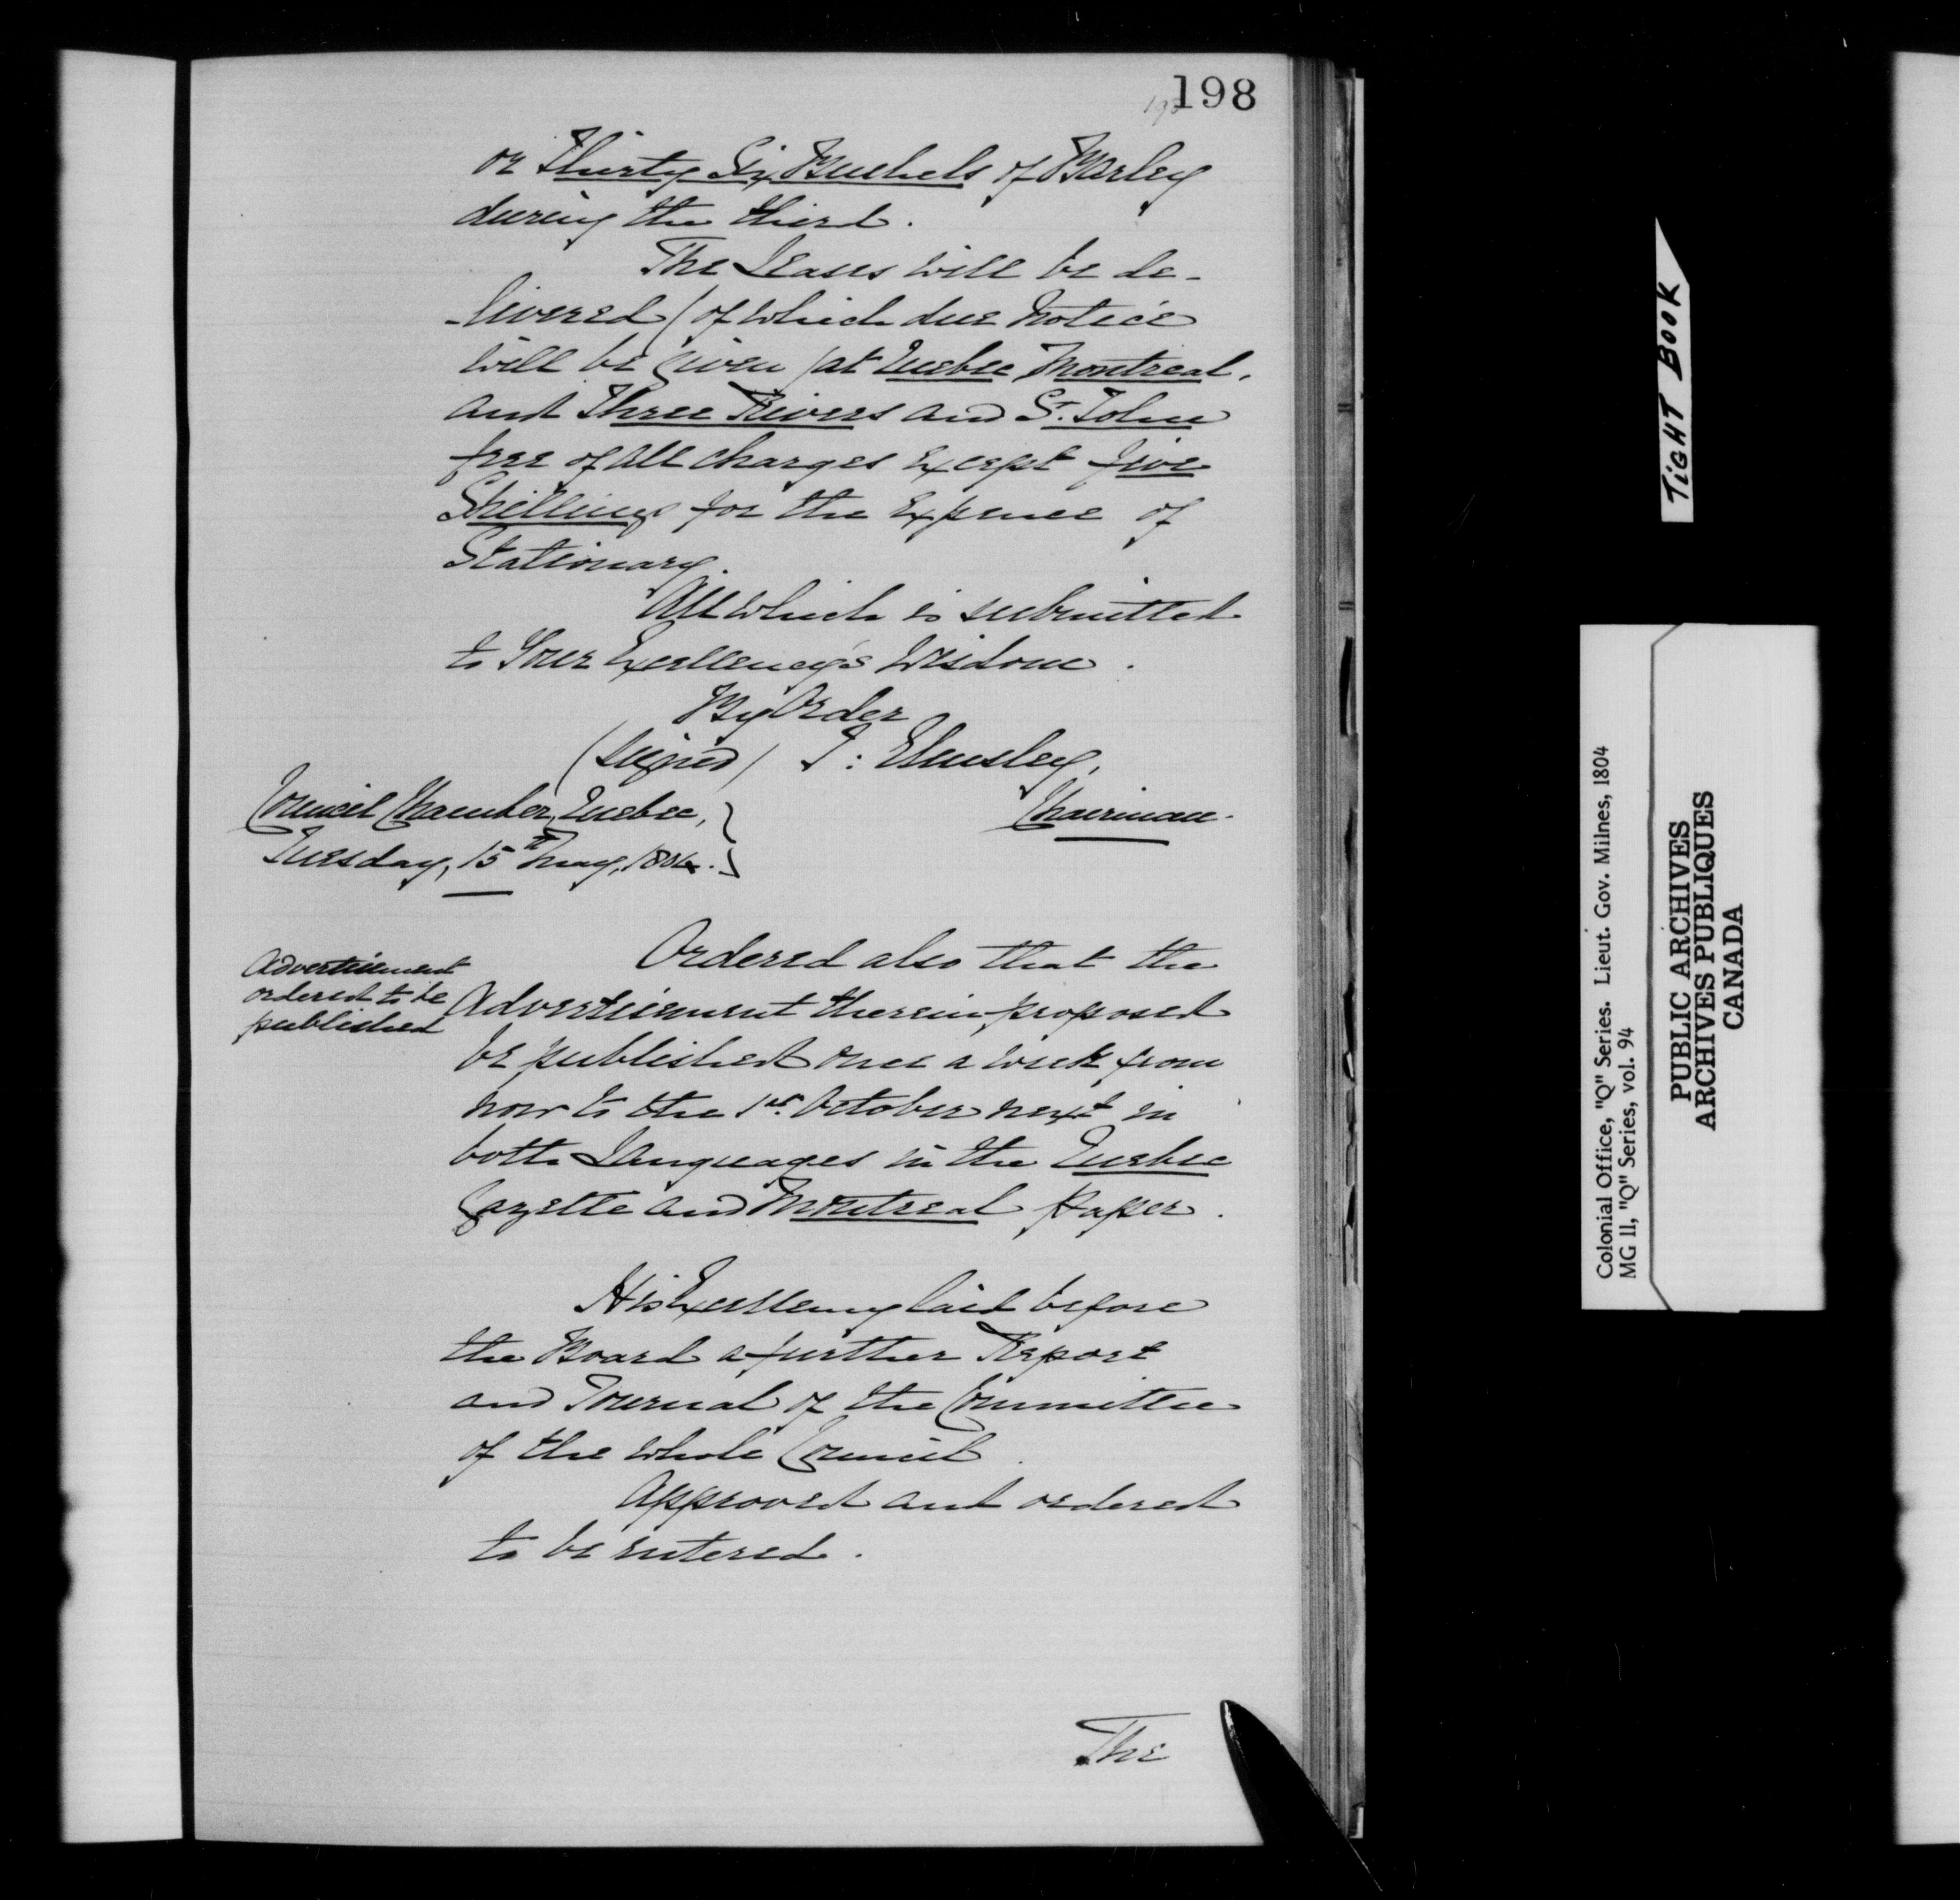 198
or Thirty Six Bushels of Barley
during the third.
The Leases will be de-
-livered (of which due notice
will be given) at Quebec Montreal,
and Three Rivers and St. John
free of all charges except five
Shillings for the Expence of
Stationary.
All which is submitted
to Your Excellency's Wisdom.
By Order
(signed) J: Elmsley,
Chairman.
Council Chamber, Quebec,
Tuesday, 15th May, 1804.
Advertisement
ordered to be
published
Ordered also that the
Advertisement therein proposed
be published once a week from
now to the 1st. October next in
both Languages in the Quebec
Gazette and Montreal paper.
His Excellency laid before
the Board a further Report
and Journal of the Committee
of the whole Council.
Approved and ordered
to be entered.
The
TIGHT BOOK
Colonial Office, "Q" Series. Lieut. Gov. Milnes, 1804
MG 11, "Q" Series, vol. 94
PUBLIC ARCHIVES
ARCHIVES PUBLIQUES
CANADA